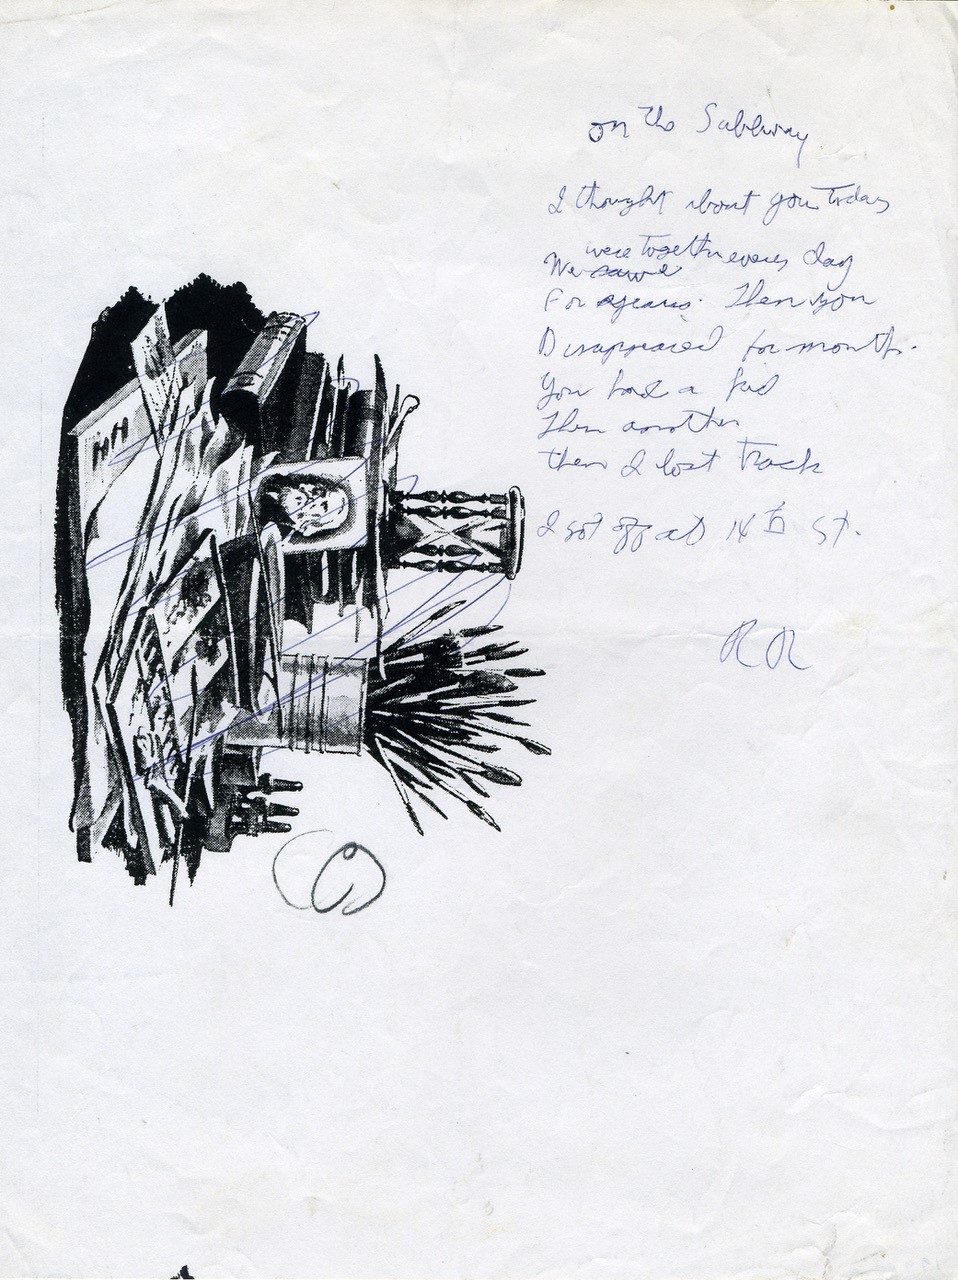 on the Subway
I thought about you today
were together every day
We saw
For years. Then you
Disappeared for months.
You had a kid
Then another
then I lost track
I got off at 14th St.
RR